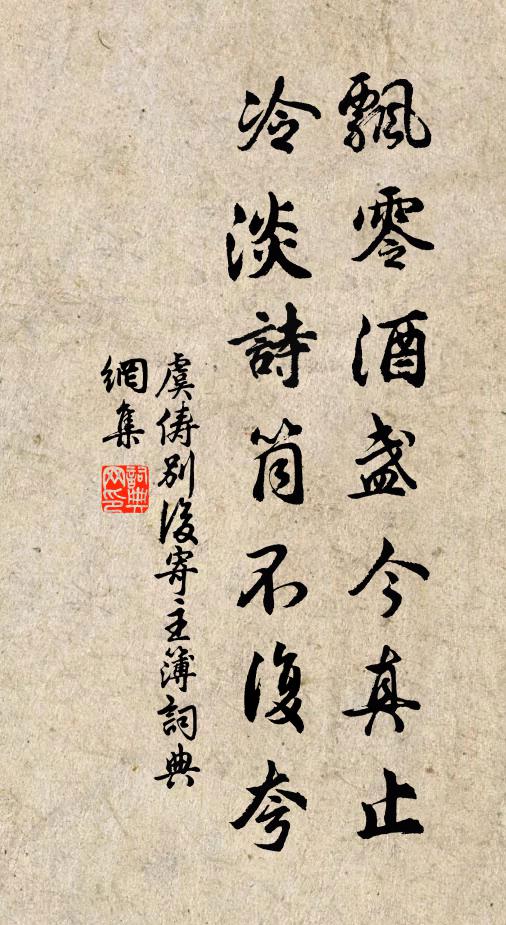 飄零酒盞今真止
冷淡詩筒不復夸
虞儔別後寄主簿詞典
網集
詞典網印